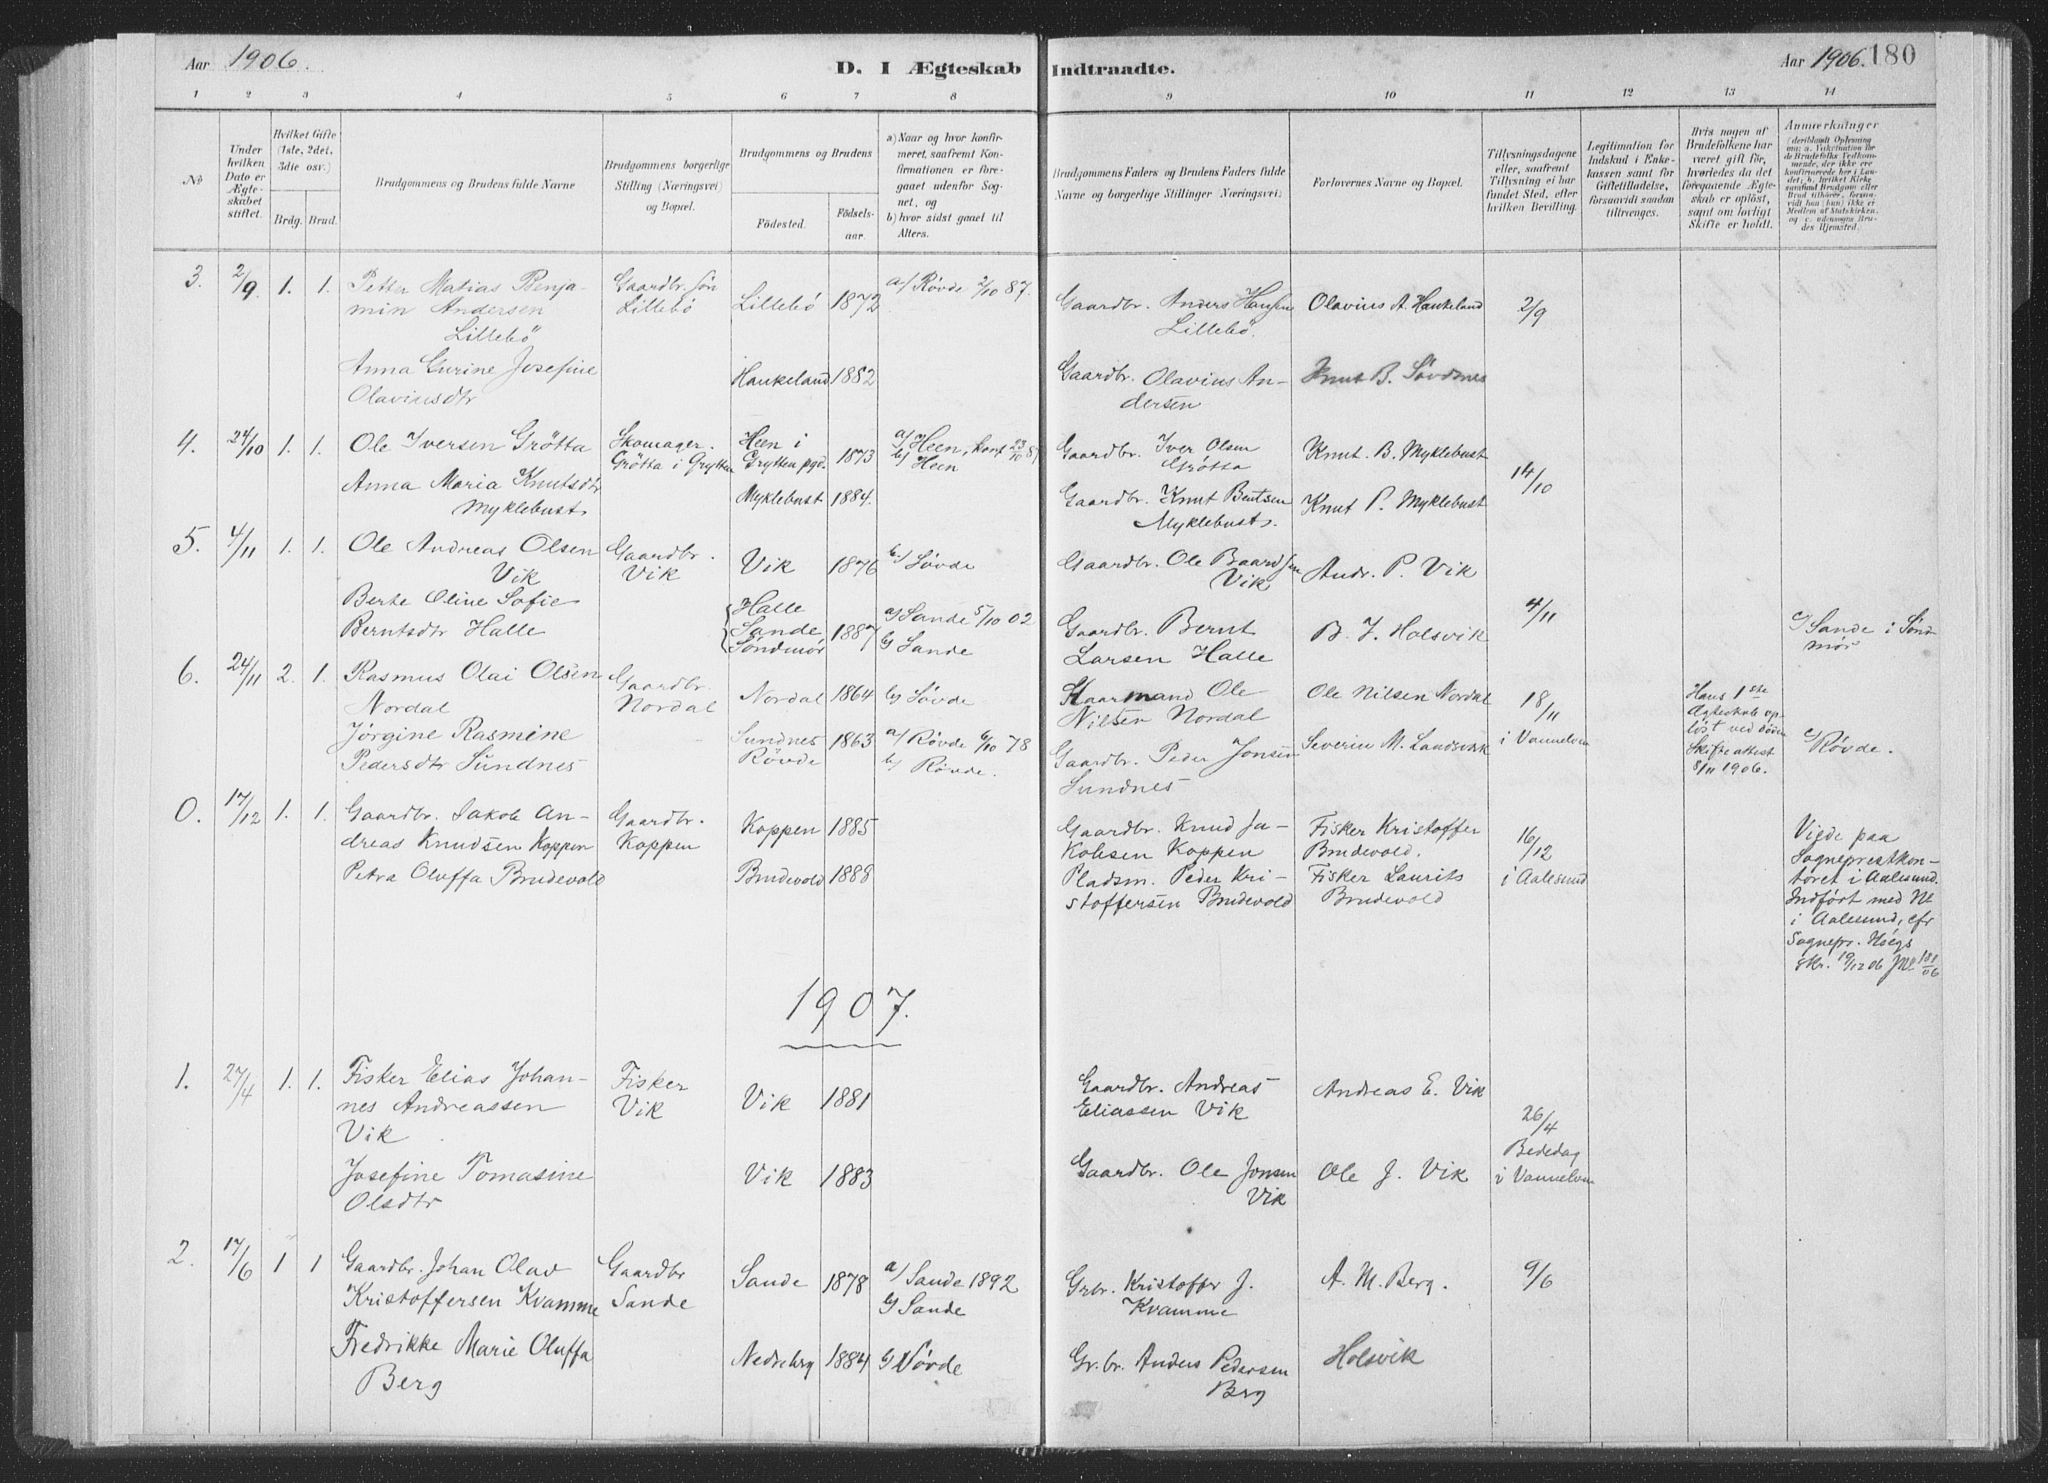 Aar 1906.
D. I Ægteskab Indtraadte.
Aar 1906. 180
1 2 3 4 5 6 7 8 9 10 11 12 13 14
No
Under hvilken Dato er Ægteskabet stiftet.
Hvilket Gifte (1ste, 2det, 3die osv.)
Brdg. Brud.
Brudgommens og Brudens fulde Navne
Brudgommens borgerlige Stilling (Næringsvei) og Bopæl.
Brudgommens og Brudens
Fødested. Fødselsaar.
a) Naar og hvor konfirmeret, saafremt Konfirmationen er foregaaet udenfor Sognet, og
b) hvor sidst gaaet til Alters.
Brudgommens Faders og Brudens Faders fulde Navne og borgerlige Stillinger (Næringsvei).
Forlovernes Navne og Bopæl.
Tillysningsdagene eller, saafremt Tillysning ei har fundet Sted, efter hvilken Bevilling.
Legitimation for Indskud i Enkekassen samt for Giftetilladelse, forsaavidt saadan tiltrænges.
Hvis nogen af Brudefolkene har været gift før, hvorledes da det foregaaende Ægteskab er opløst, samt om lovligt Skifte er holdt.
Anmærkninger
3. 2/9. 1. 1.
Petter Matias Benja-
min Andersen
Lillebö
Anna Gurine Josefine
Olaviusdtr
Gaardbr. Søn
Lillebö
Lillebö 1872
a/ Røvde 2/10 87.
Haukeland 1882
Gaardbr. Anders Hansen
Lillebö.
Gaardbr. Olavius An-
dersen
Olavius A. Haukeland
Knut B. Søvdsnes
2/9
4. 24/10 1. 1.
Ole Iversen Grötta
Anna Maria Knutsdtr
Myklebust
Skomager.
Grötta i Grytten
Heen i
Grytten pgd. 1873
Myklebust 1884.
a/ Heen, konf 23/10 87
b/ Heen
Gaardbr. Iver Olsen
Grøtta
Gaardbr. Knut Bentsen
Myklebust.
Knut. B. Myklebust
Knut P. Myklebust
14/10
5. 4/11 1. 1.
Ole Andreas Olsen
Vik
Berte Oline Sofie
Berntsdtr Halle
Gaardbr.
Vik
Vik 1876
b/ Søvde
Halle
Sande
Søndmør 1887
a/ Sande 5/10 02
b/ Sande
Gaardbr. Ole Baardsen
Vik
Gaardbr. Bernt
Larsen Halle
Andr. P. Vik
B. J. Holsvik
4/11
c/ Sande i Sønd-
mør
6. 24/11 2. 1.
Rasmus Olai Olsen
Nordal
Jørgine Rasmine
Pedersdtr Sundnes
Gaardbr.
Nordal
Nordal 1864
b/ Søvde
Sundnes
Røvde 1863
a/ Røvde 6/10 78
b/ Røvde.
Kaarmand Ole
Nilsen Nordal
Gaardbr. Peder Jonsen
Sundnes
Ole Nilsen Nordal
Severin M. Landsvik
18/11
i Vannelven
Hans 1ste
Ægteskab op-
løst ved døden
Skifteattest
8/11 1906.
c/ Røvde.
0. 17/12 1. 1.
Gaardbr. Jakob An-
dreas Knudsen Koppen
Petra Oluffa Brudevold
Gaardbr.
Koppen
Koppen 1885
Brudevold 1888
Gaardbr. Knud Ja-
kobsen Koppen
Pladsm. Peder Kri-
stoffersen Brudevold
Fisker Kristoffer
Brudevold.
Fisker Laurits
Brudevold
16/12
i Aalesund
Viede paa
Sogneprestkon-
toret i Aalesund.
Indført med No
i Aalesund, cfr
Sognepr. Høegs
skr. 19/12 06
1907.
1. 27/4 1. 1.
Fisker Elias Johan-
nes Andreassen
Vik
Josefine Tomasine
Olsdtr
Fisker
Vik
Vik 1881
Vik 1883
Gaardbr. Andreas
Eliassen Vik
Gaardbr. Ole Jonsen
Vik
Andreas E. Vik
Ole J. Vik
26/4
Bededag
i Vannelven
2. 17/6 1 1
Gaardbr. Johan Olav
Kristoffersen Kvamme
Fredrikke Marie Oluffa
Berg
Gaardbr
Sande
Sande 1878
a/ Sande 1892
b/ Sande
Nedreberg 1884
b/ Søvde
Grbr. Kristoffer J.
Kvamme
Gr. br. Anders Pedersen
Berg
A. M. Berg.
Holsvik
9/6